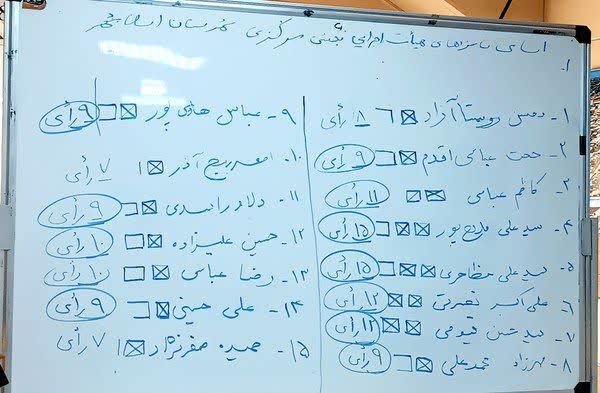 اسامی نامزدهای هیأت اجرایی بخش مرکزی شهرستان اسلامشهر
۱.
۱- روستا آزاد ۸ رأی
۲- حجت عباسی اقدم ۹ رأی
۳- کاظم عباسی ۱۱ رأی
۴- سید علی پور ۱۵ رأی
۵- سید علی مظاهری ۱۵ رأی
۶- علی اکبر ۱۲ رأی
۷- سید حسن قیومی ۱۲ رأی
۸- مهرزاد محمدعلی ۹ رأی
۹- عباس هادی پور ۹ رأی
۱۰- آذر ۷ رأی
۱۱- دلاور اسدی ۹ رأی
۱۲- حسین علیزاده ۱۰ رأی
۱۳- رضا عباسی ۱۰ رأی
۱۴- علی حسینی ۹ رأی
۱۵- حمیده صفرنژاد ۷ رأی